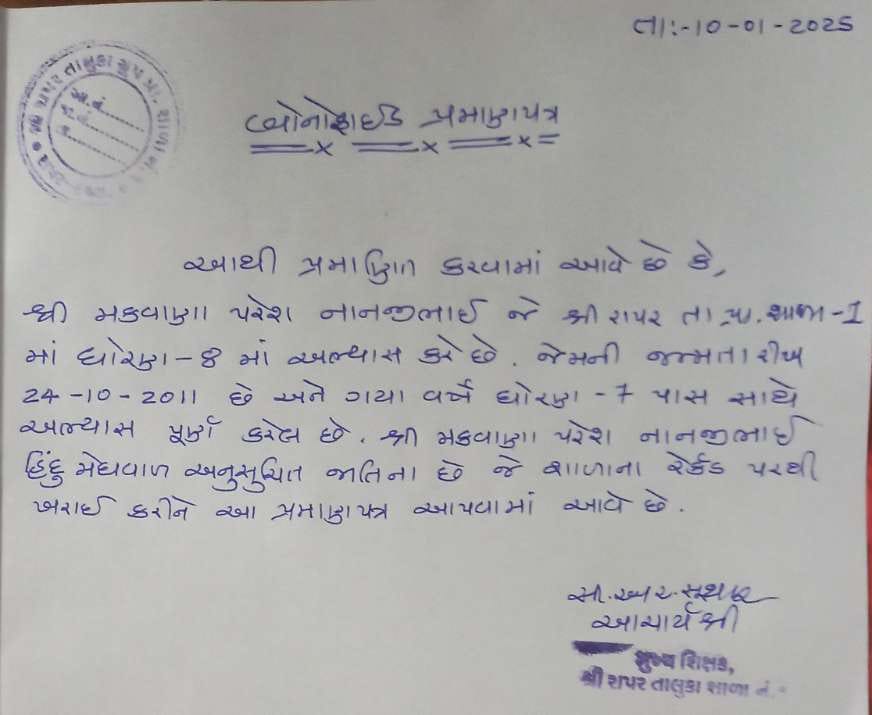 તા:-10-01-2025
રાપર તાલુકા ગ્રુપ પ્રા. શાળા નં.
બોનોફાઈડ પ્રમાણપત્ર
આથી પ્રમાણિત કરવામાં આવે છે કે,
શ્રી મકવાણા પરેશ નાનજીભાઈ જે શ્રી રાપર તા.પ્રા. શાળા-1
માં ધોરણ-8 માં અભ્યાસ કરે છે. જેમની જન્મતારીખ
24-10-2011 છે અને ગયા વર્ષે ધોરણ-7 પાસ સાથે
અભ્યાસ પૂર્ણ કરેલ છે. શ્રી મકવાણા પરેશ નાનજીભાઈ
હિંદુ મેઘવાળ અનુસુચિત જાતિના છે જે શાળાના રેર્કડ પરથી
ખરાઈ કરીને આ પ્રમાણપત્ર આપવામાં આવે છે.
સી.આર.સુથાર
આચાર્ય શ્રી
મુખ્ય શિક્ષક,
શ્રી રાપર તાલુકા શાળા નં.